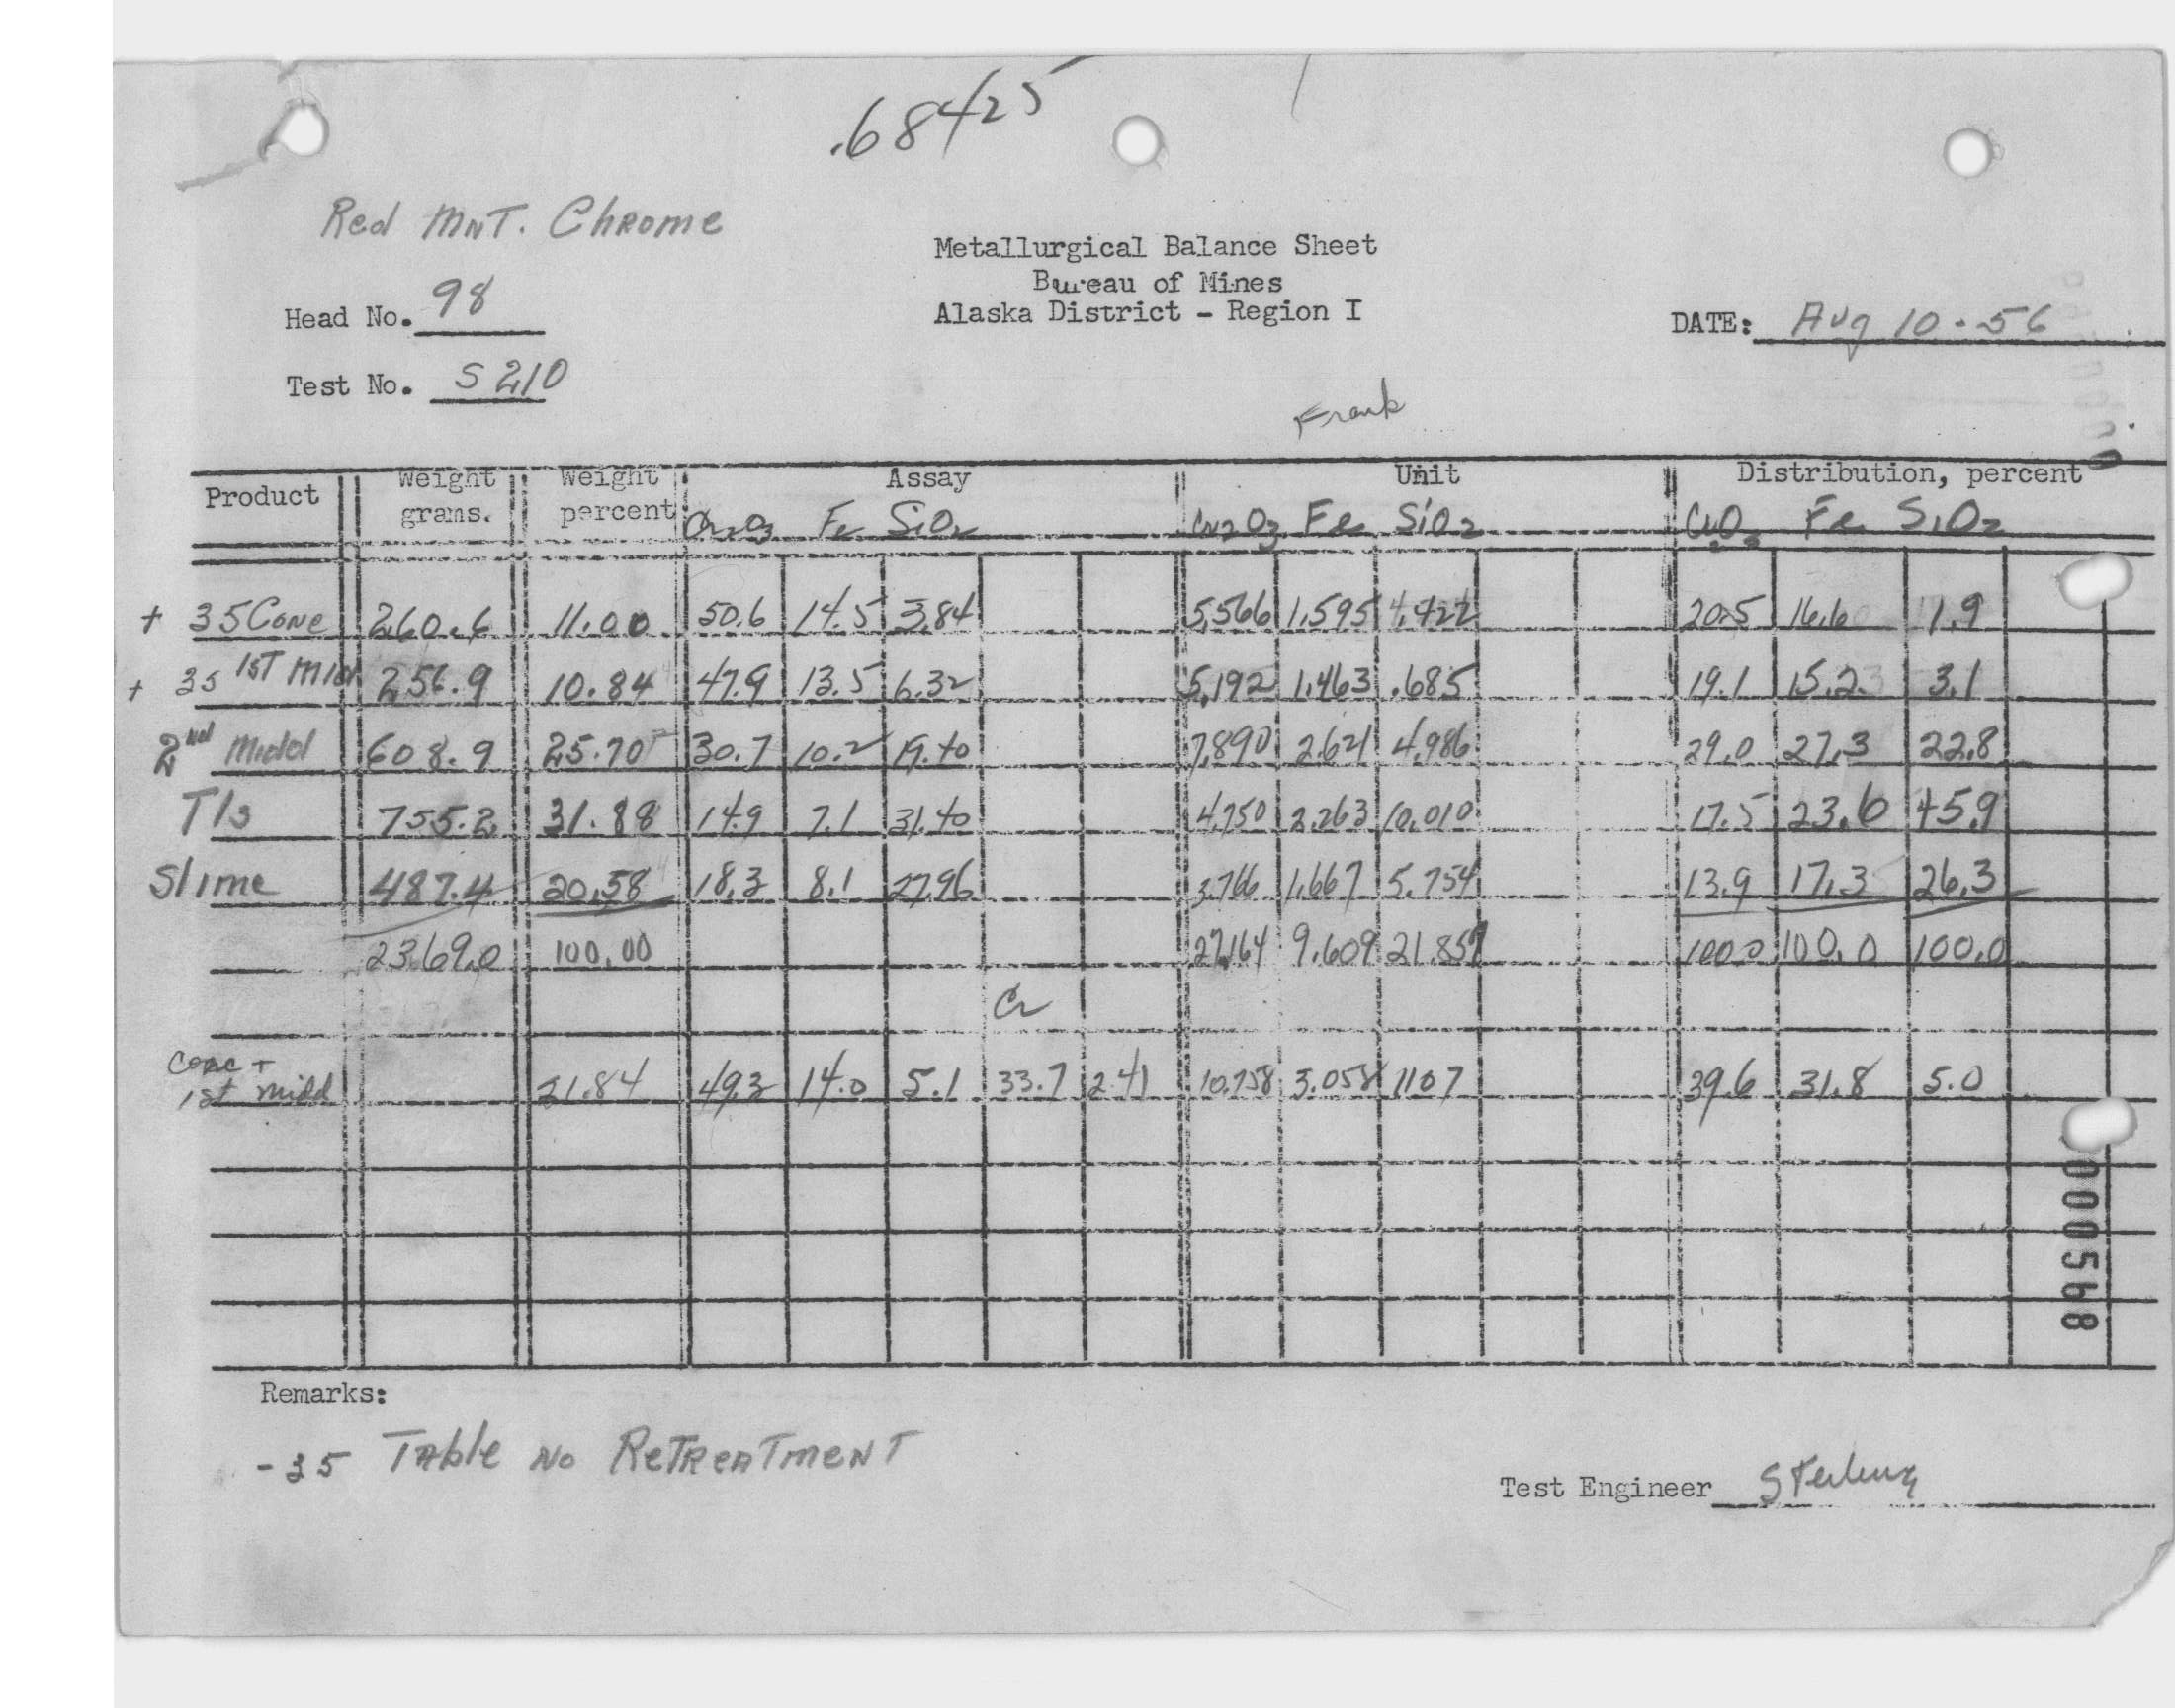 .68425
Red MNT. Chrome
Metallurgical Balance Sheet
Bureau of Mines
Alaska District - Region I
Head No. 98
DATE: Aug 10-56
Test No. S210
Frank
Product Weight grams. Weight percent Assay Unit Distribution, percent
Cr2O3 Fe SiO2 Cr2O3 Fe SiO2 Cr2O3 Fe SiO2
+ 35 Conc 260.6 11.00 50.6 14.5 3.84 5,566 1.595 .422 20.5 16.6 1.9
+ 35 1ST MID 256.9 10.84 47.9 13.5 6.32 5,192 1.463 .685 19.1 15.2 3.1
2nd Midd 608.9 25.70 30.7 10.2 19.40 7,890 2.621 4.986 29.0 27.3 22.8
Tls 755.2 31.88 14.9 7.1 31.40 4.750 2.263 10.010 17.5 23.6 45.9
Slime 487.4 20.58 18.3 8.1 27.96 3.766 1.667 5.754 13.9 17.3 26.3
2369.0 100.00 27.164 9.609 21.857 100.0 100.0 100.0
Cr
Conc +
1st midd 21.84 49.3 14.0 5.1 33.7 2.41 10.758 3.058 1107 39.6 31.8 5.0
000568
Remarks:
-35 Table No ReTreatment
Test Engineer Sterling